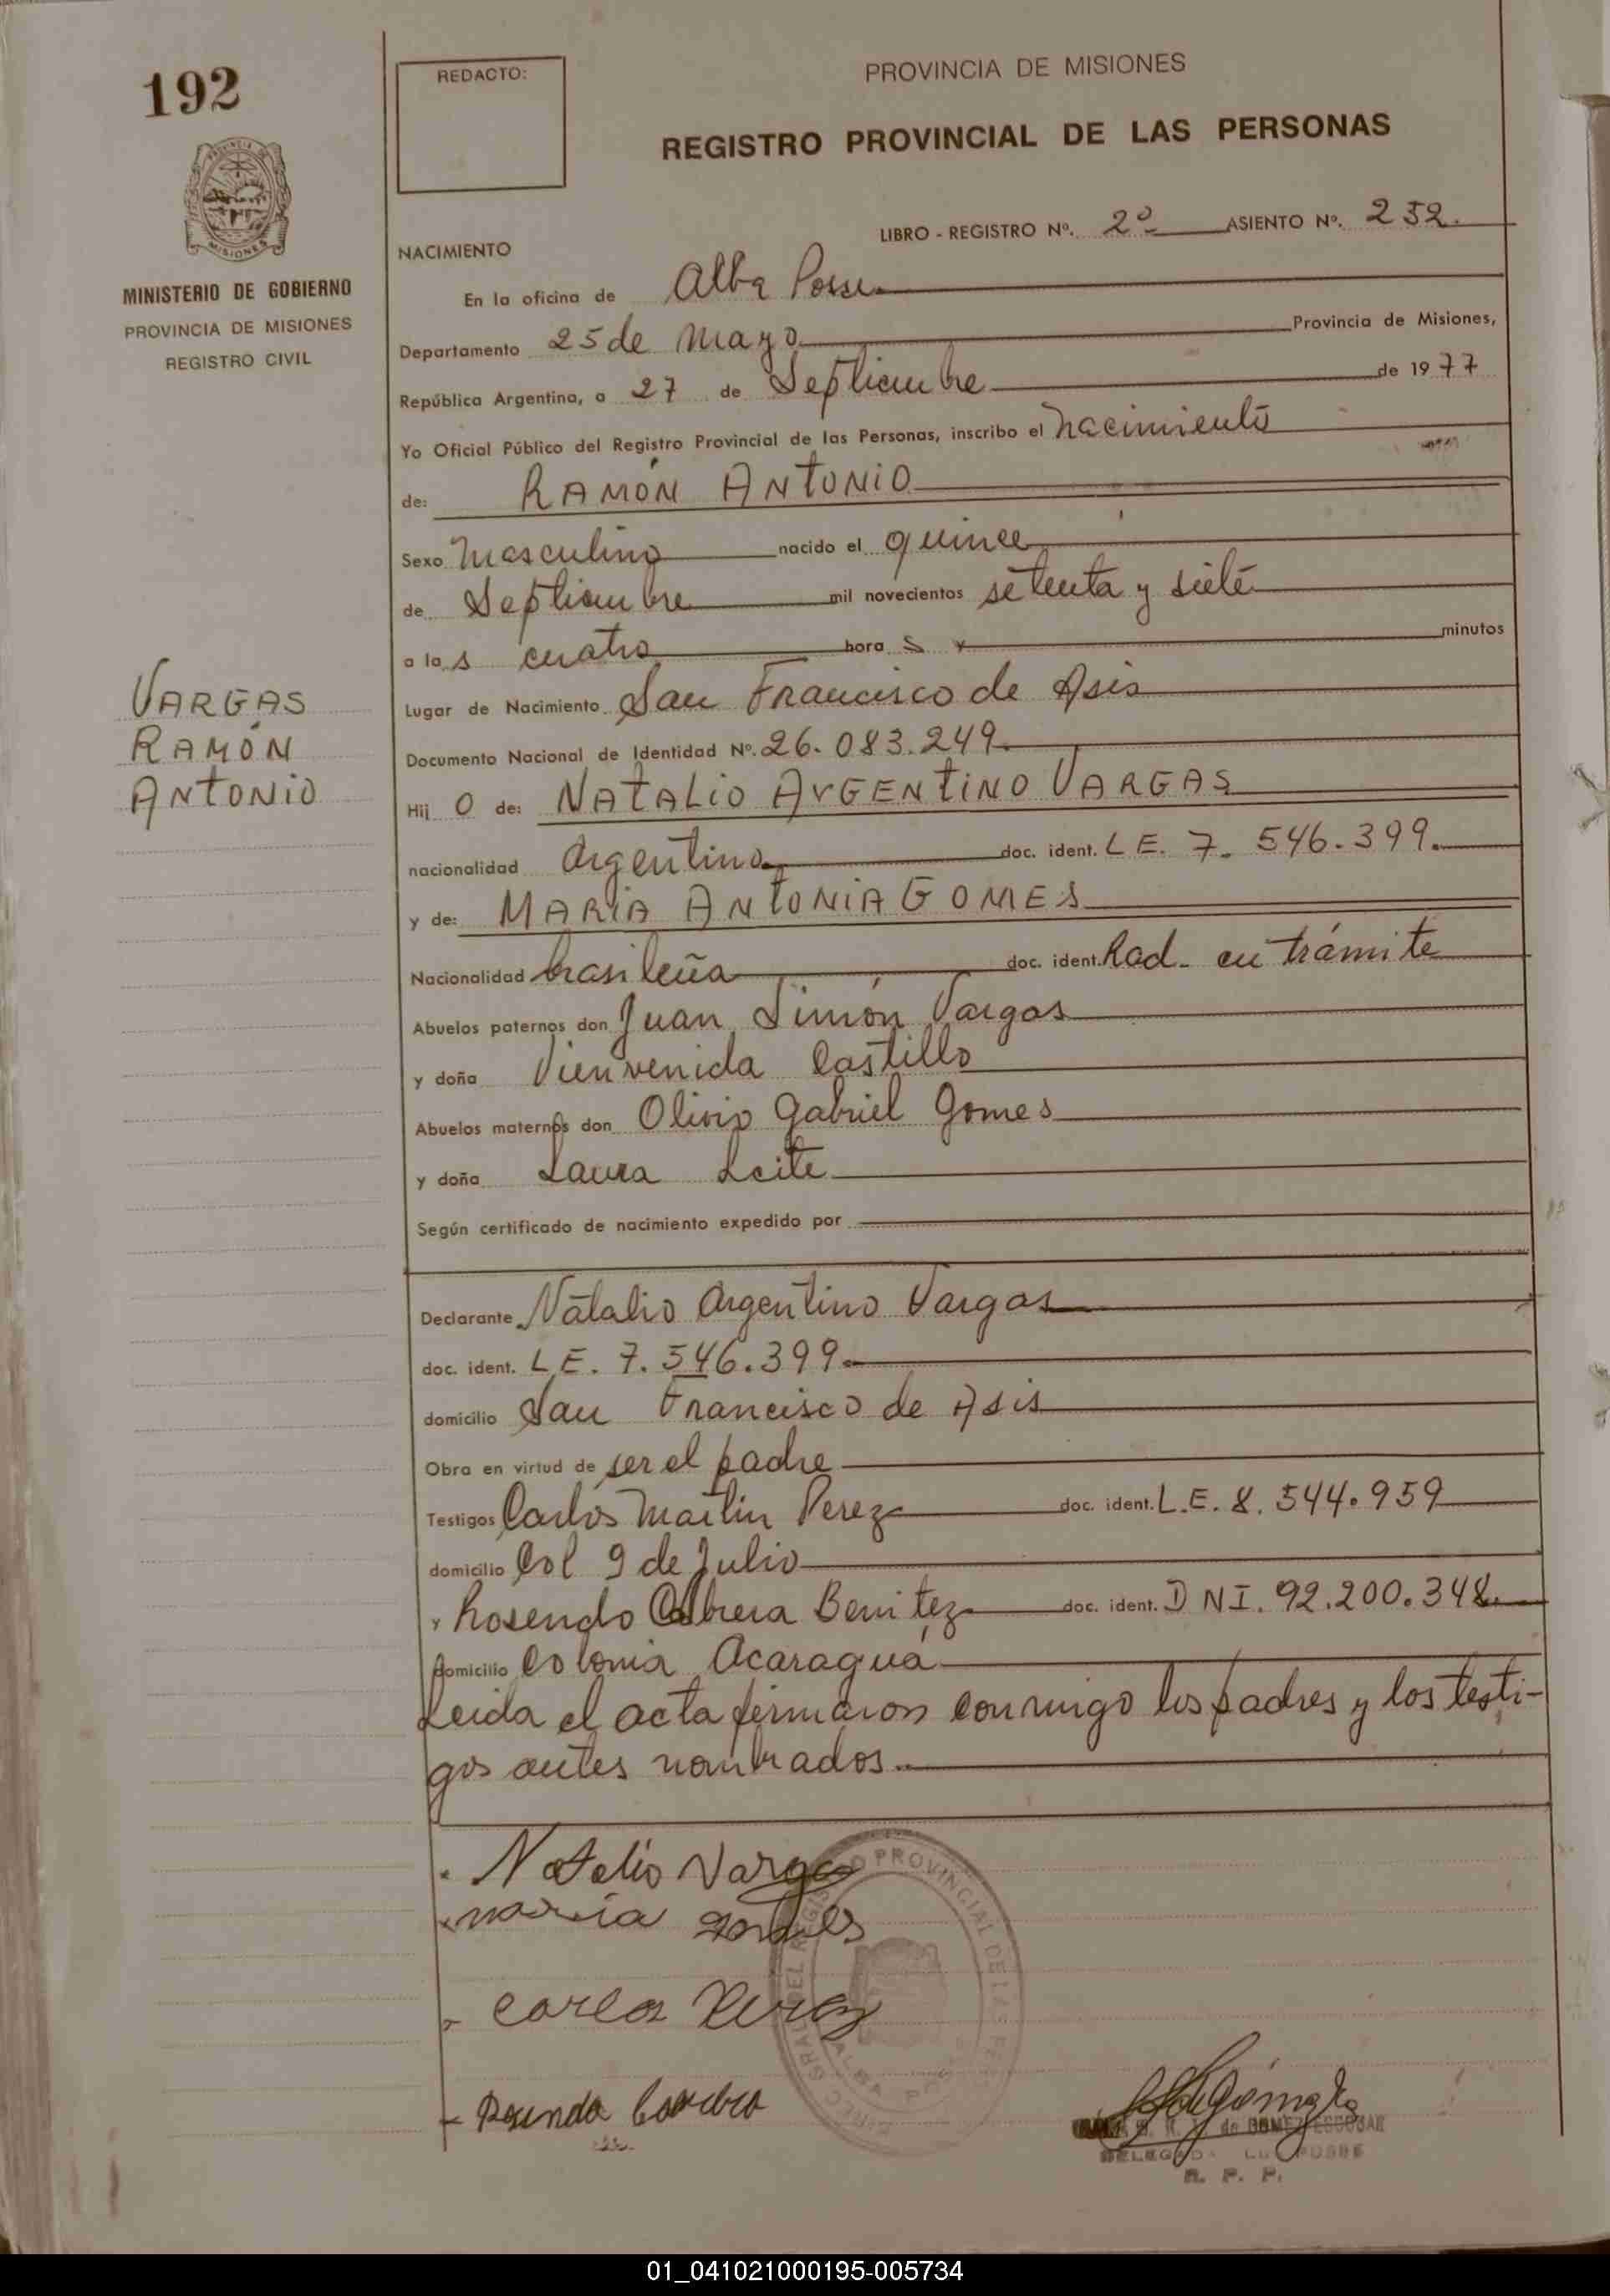 192
REDACTO:
PROVINCIA DE MISIONES
REGISTRO PROVINCIAL DE LAS PERSONAS
MISIONES
MINISTERIO DE GOBIERNO
PROVINCIA DE MISIONES
REGISTRO CIVIL
LIBRO - REGISTRO Nº. 2º ASIENTO Nº. 252.
NACIMIENTO
En la oficina de Alba Posse
Departamento 25 de Mayo Provincia de Misiones,
República Argentina, a 27 de Septiembre de 1977
Yo Oficial Público del Registro Provincial de las Personas, inscribo el nacimiento
de: RAMÓN ANTONIO
Sexo masculino nacido el quince
de Septiembre mil novecientos setenta y siete
a las cuatro horas y minutos
Lugar de Nacimiento San Francisco de Asis
Documento Nacional de Identidad Nº. 26.083.249.
VARGAS
RAMÓN
ANTONIO
Hijo de: NATALIO ARGENTINO VARGAS
nacionalidad Argentino doc. ident. L E. 7. 546.399.
y de: MARIA ANTONIA GOMES
Nacionalidad brasileña doc. ident. Rad. en trámite
Abuelos paternos don Juan Simón Vargas
y doña Vienvenida Castillo
Abuelos maternos don Olivio Gabriel Gomes
y doña Laura Leite
Según certificado de nacimiento expedido por
Declarante Natalio Argentino Vargas
doc. ident. L.E. 7.546.399.
domicilio San Francisco de Asis
Obra en virtud de ser el padre
Testigos Carlos Martin Perez doc. ident. L.E. 8.544.959
domicilio Col 9 de Julio
y Rosendo Cabrera Benitez doc. ident. D N I. 92.200.348.
domicilio Colonia Acaraguá
Leida el acta firmaron conmigo los padres y los testi-
gos antes nombrados.
Natalio Vargas
maria gomes
Carlos Perez
DIREC. GRAL. DEL REGISTRO PROVINCIAL DE LAS PERS
ALBA POSSE
R. P. P.
01_041021000195-005734